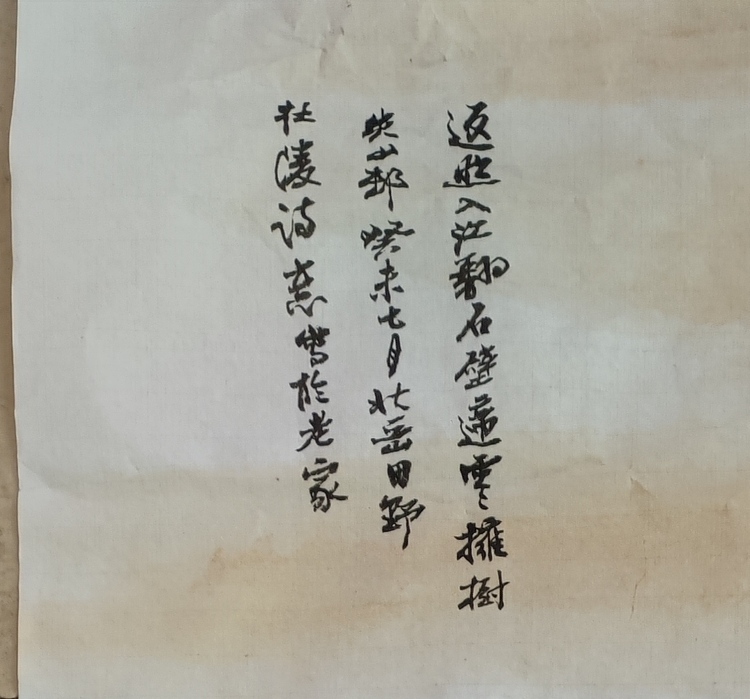 返照入江翻石壁雲擁樹
失山邨癸未七月北岳田野
杜陵诗意寫於老家